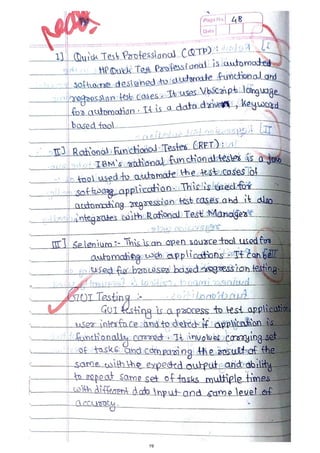 Page No. 48
Date
I] Quick Test Professional (QTP) :
HP Quick Test Professional is automated
software designed to automate functional and
regression test cases. It uses VbScript language
for automation. It is a data driven, keyword
based tool
II] Rational Functional Tester (RFT) :
IBM's rational functional tester is a java
tool used to automate the test cases of
software application. This is used for
automating regression test cases and it also
integrates with Rational Test Manager
III] Selenium :- This is an open source tool used for
automating web applications. It can be
used for browser based regression testing
GUI Testing :-
GUI testing is a process to test application
user interface and to detect if application is
functionally correct. It involves carrying set
of tasks and comparing the result of the
same with the expected output and ability
to repeat same set of tasks multiple times
with different data Input and same level of
accuracy.